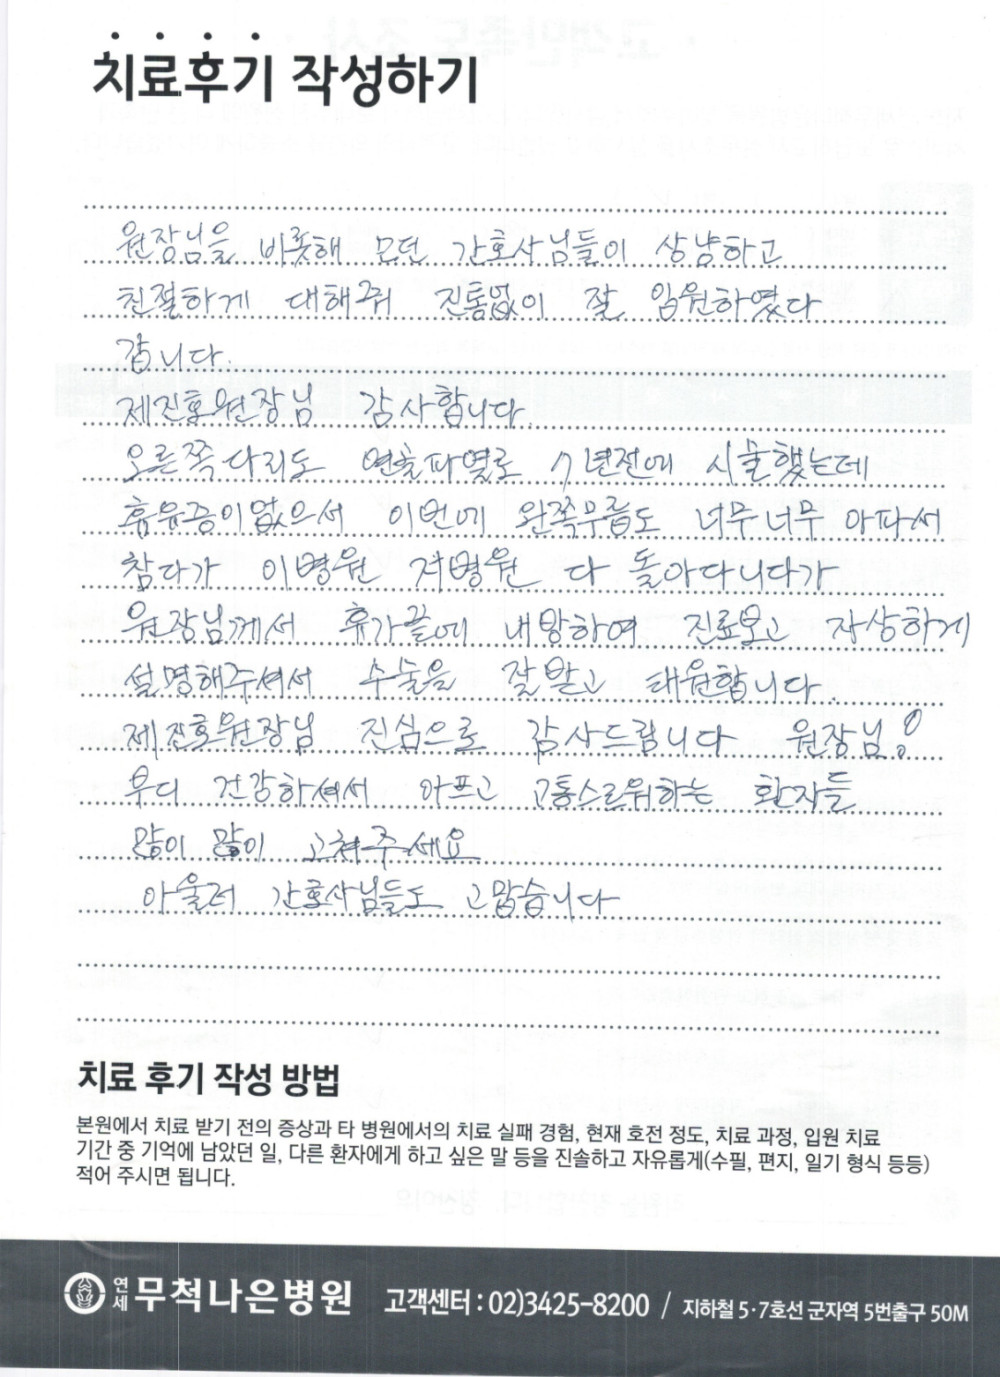 치료후기 작성하기
원장님을 비롯해 모던 간호사님들이 상냥하고
친절하게 대해줘 진통없이 잘 입원하였다
갑니다.
제진호원장님 감사합니다.
오른쪽다리도 연골파열로 7년전에 시술했는데
휴유증이없으서 이번에 왼쪽무릎도 너무너무 아파서
참다가 이병원 저병원 다 돌아다니다가
원장님께서 휴가끝에 내왕하여 진료보고 자상하게
설명해주셔서 수술을 잘받고 태원합니다.
제진호원장님 진심으로 감사드립니다 원장님!
부디 건강하셔서 아프고 고통스러워하는 환자들
많이 많이 고쳐주세요
아울러 간호사님들도 고맙습니다
치료 후기 작성 방법
본원에서 치료 받기 전의 증상과 타 병원에서의 치료 실패 경험, 현재 호전 정도, 치료 과정, 입원 치료
기간 중 기억에 남았던 일, 다른 환자에게 하고 싶은 말 등을 진솔하고 자유롭게(수필, 편지, 일기 형식 등등)
적어 주시면 됩니다.
연세 무척나은병원 고객센터 : 02)3425-8200 / 지하철 5·7호선 군자역 5번출구 50M